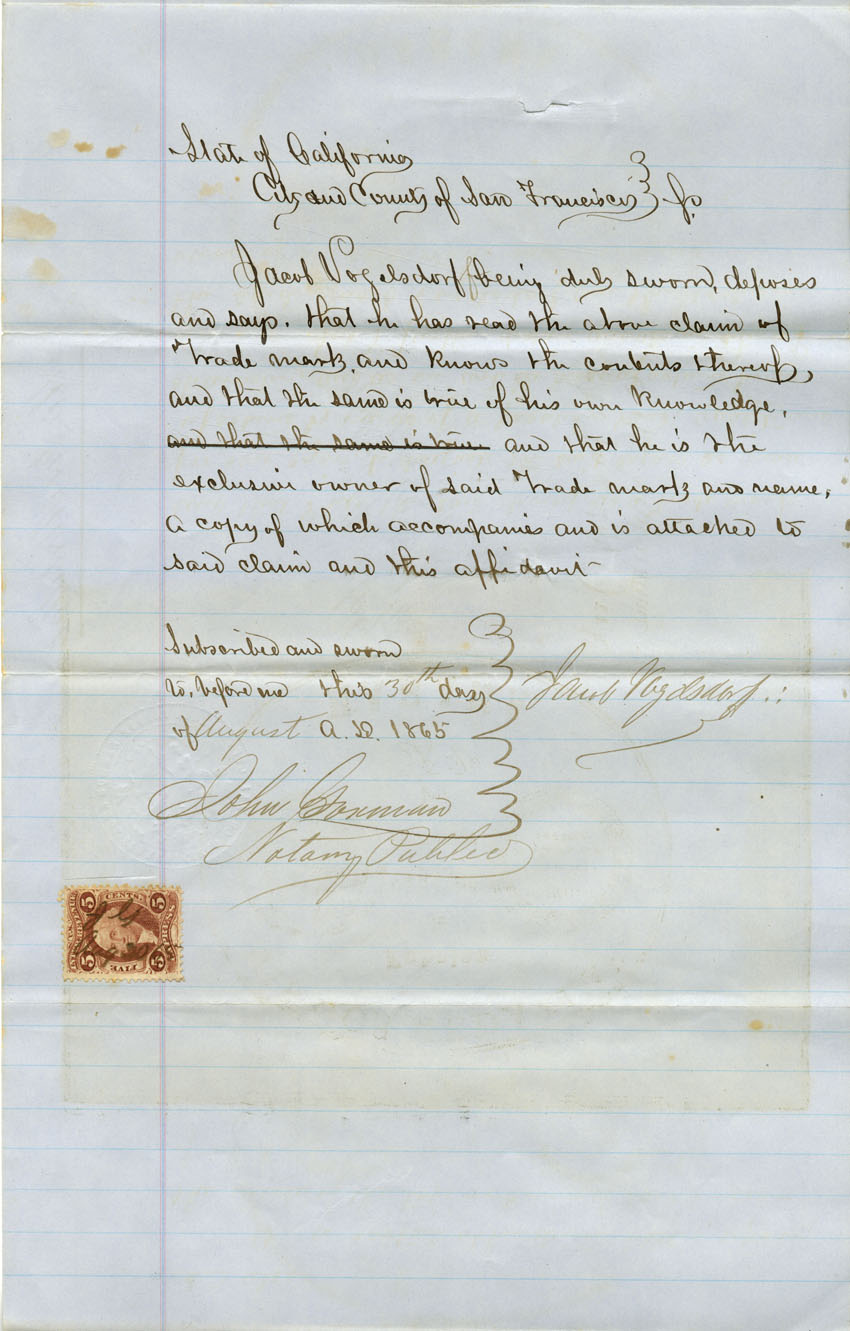 State of California
City and County of San Francisco } Ss
Jacob Vogelsdorff being duly sworn, deposes
and says. that he has read the above claim of
Trade mark, and knows the contents thereof,
and that the same is true of his own knowledge,
and that the same is true and that he is the
exclusive owner of said Trade mark and name,
a copy of which accompanies and is attached to
said claim and this affidavit
Subscribed and sworn
to, before me this 30th day
of August A.D. 1865
Jacob Vogelsdorff
John Gorman
Notary Public
5 CENTS 5
5 FIVE 5